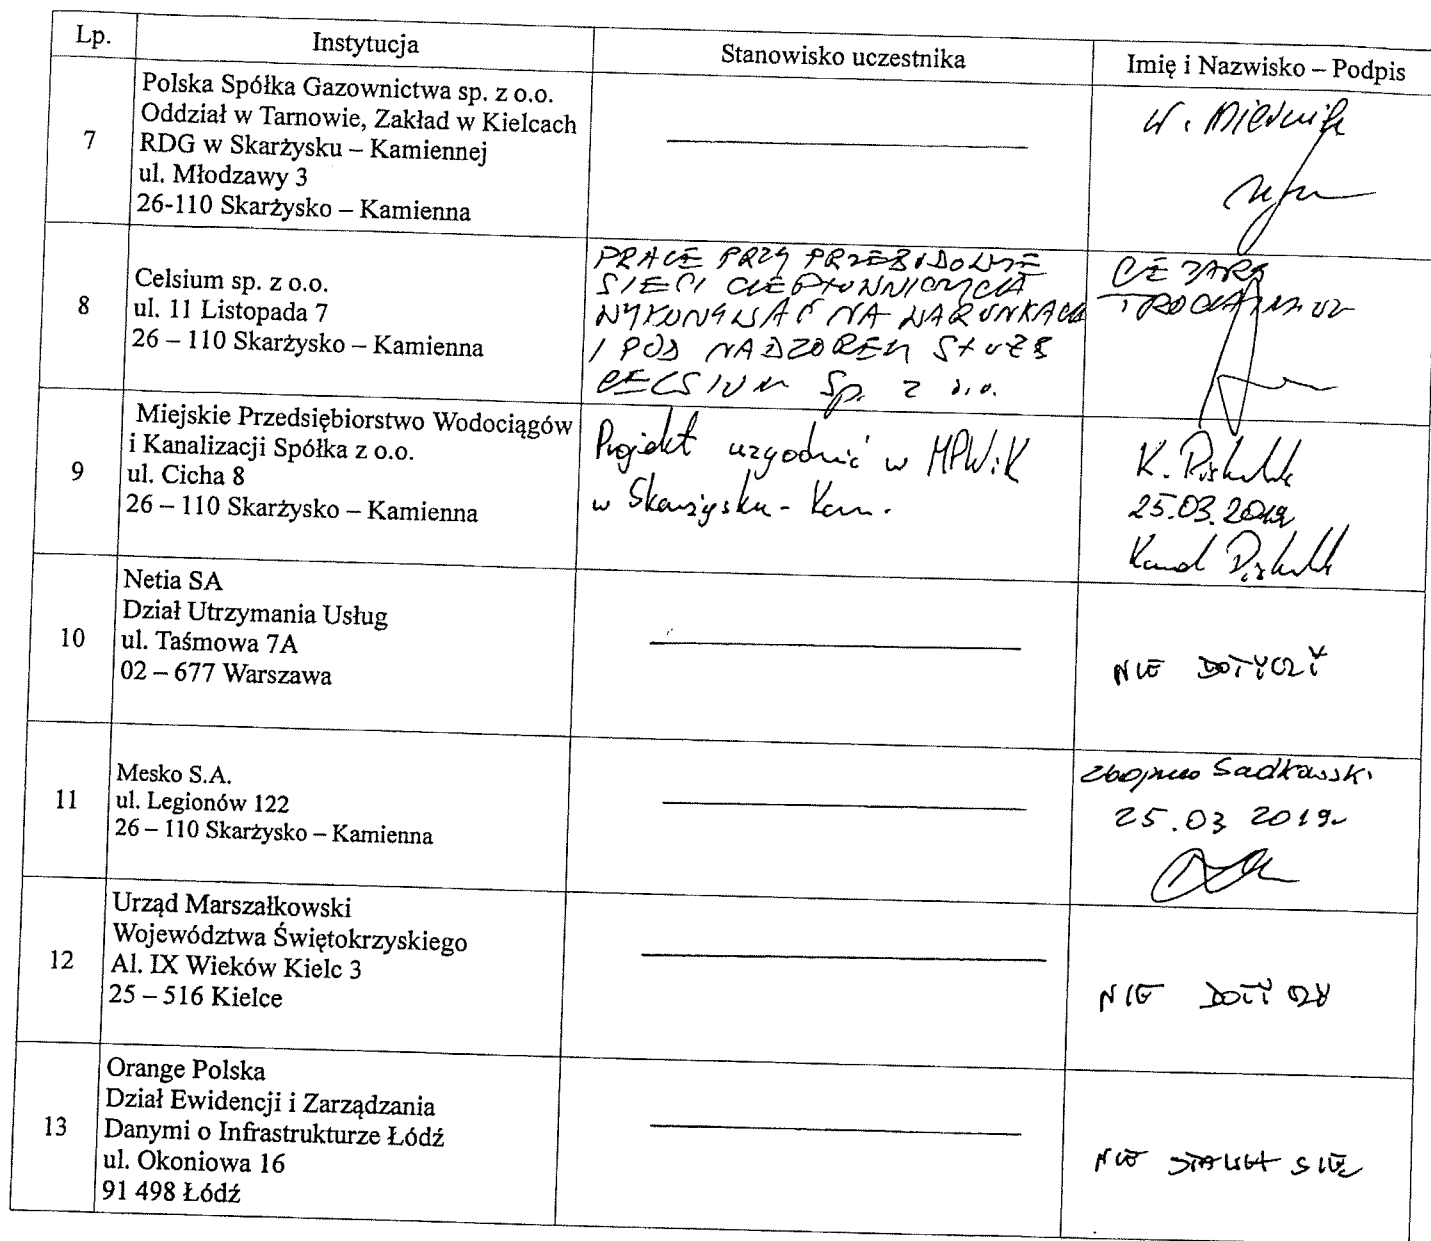 Lp.
Instytucja
Stanowisko uczestnika
Imię i Nazwisko – Podpis
7
Polska Spółka Gazownictwa sp. z o.o.
Oddział w Tarnowie, Zakład w Kielcach
RDG w Skarżysku – Kamiennej
ul. Młodzawy 3
26-110 Skarżysko – Kamienna
W.
8
Celsium sp. z o.o.
ul. 11 Listopada 7
26 – 110 Skarżysko – Kamienna
PRACE PRZY PRZEBUDOWIE
SIECI CIEPŁOWNICZYCH
WYKONYWAĆ NA WARUNKACH
I POD NADZOREM SŁUŻB
CELSIUM Sp. z o.o.
CEZARY
9
Miejskie Przedsiębiorstwo Wodociągów
i Kanalizacji Spółka z o.o.
ul. Cicha 8
26 – 110 Skarżysko – Kamienna
Projekt uzgodnić w MPWiK
w Skarżysku - Kam.
K.
25.03.2019
10
Netia SA
Dział Utrzymania Usług
ul. Taśmowa 7A
02 – 677 Warszawa
NIE DOTYCZY
11
Mesko S.A.
ul. Legionów 122
26 – 110 Skarżysko – Kamienna
Zbigniew Sadkowski
25.03 2019
12
Urząd Marszałkowski
Województwa Świętokrzyskiego
Al. IX Wieków Kielc 3
25 – 516 Kielce
NIE DOTYCZY
13
Orange Polska
Dział Ewidencji i Zarządzania
Danymi o Infrastrukturze Łódź
ul. Okoniowa 16
91 498 Łódź
NIE STAWIŁ SIĘ